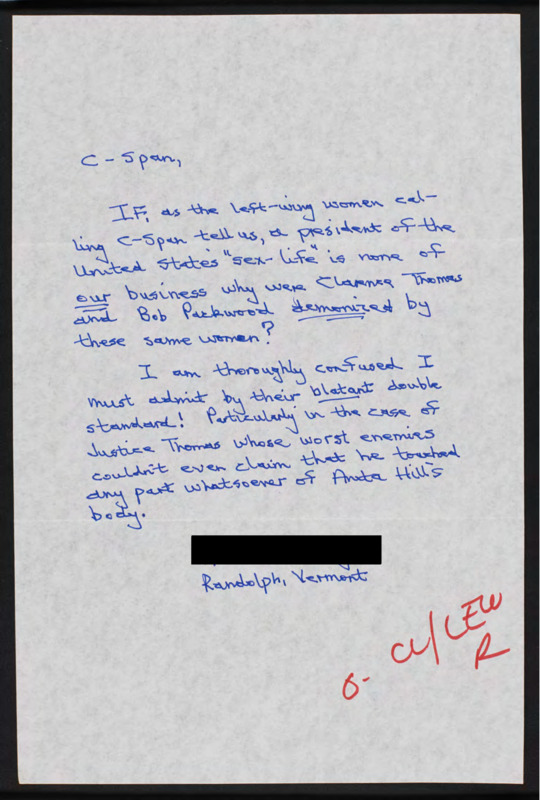 C-Span,
IF, as the left-wing women cal-
ling C-Span tell us, a president of the
United States "sex-life" is none of
our business why were Clarence Thomas
and Bob Packwood demonized by
these same women?
I am thoroughly confused I
must admit by their blatant double
standard! Particularly in the case of
Justice Thomas whose worst enemies
couldn't even claim that he touched
any part whatsoever of Anita Hill's
body.
Randolph, Vermont
CL/LEW
R